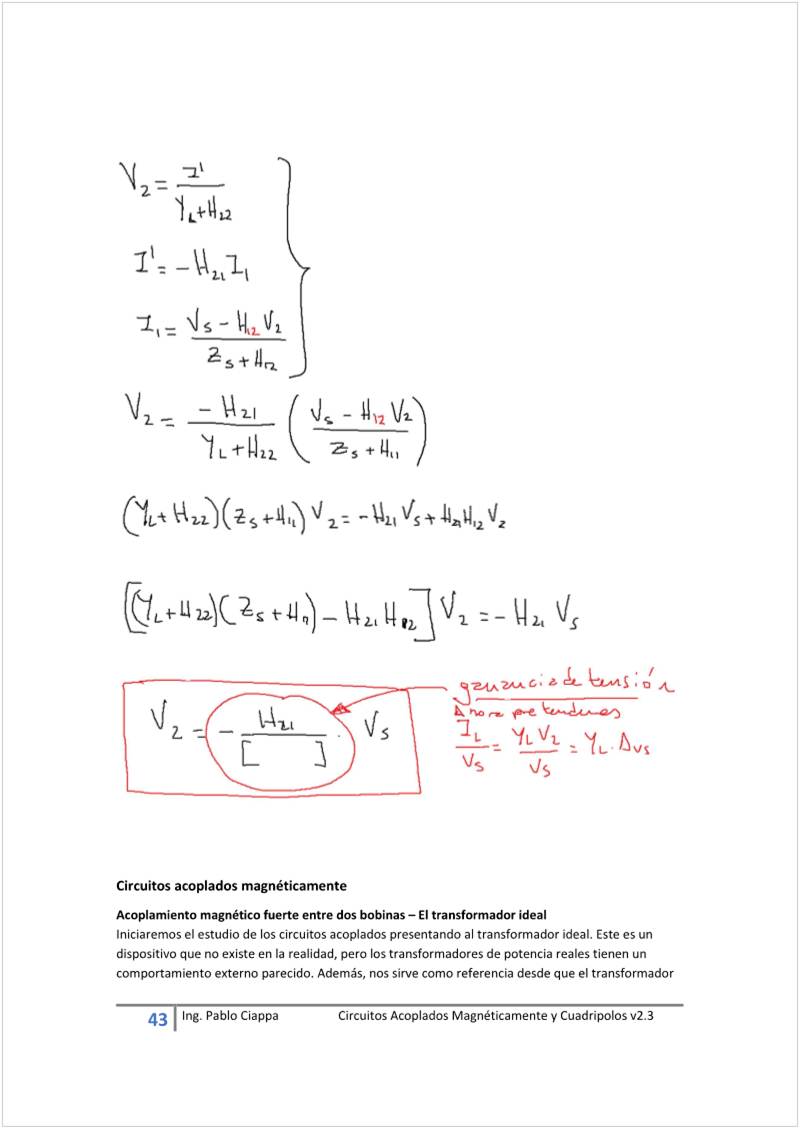 V₂ = I' / (Y_L + H₂₂)
I' = -H₂₁ I₁
I₁ = (V_S - H₁₂ V₂) / (Z_S + H₁₂)
V₂ = -H₂₁ / (Y_L + H₂₂) ( (V_S - H₁₂ V₂) / (Z_S + H₁₁) )
(Y_L + H₂₂)(Z_S + H₁₁) V₂ = -H₂₁ V_S + H₂₁ H₁₂ V₂
[(Y_L + H₂₂)(Z_S + H₁₁) - H₂₁ H₁₂] V₂ = -H₂₁ V_S
ganancia de tensión
V₂ = - H₂₁ / [ ] · V_S
I_L / V_S = Y_L V₂ / V_S = Y_L · A_VS
Circuitos acoplados magnéticamente
Acoplamiento magnético fuerte entre dos bobinas – El transformador ideal
Iniciaremos el estudio de los circuitos acoplados presentando al transformador ideal. Este es un
dispositivo que no existe en la realidad, pero los transformadores de potencia reales tienen un
comportamiento externo parecido. Además, nos sirve como referencia desde que el transformador
43 Ing. Pablo Ciappa Circuitos Acoplados Magnéticamente y Cuadripolos v2.3